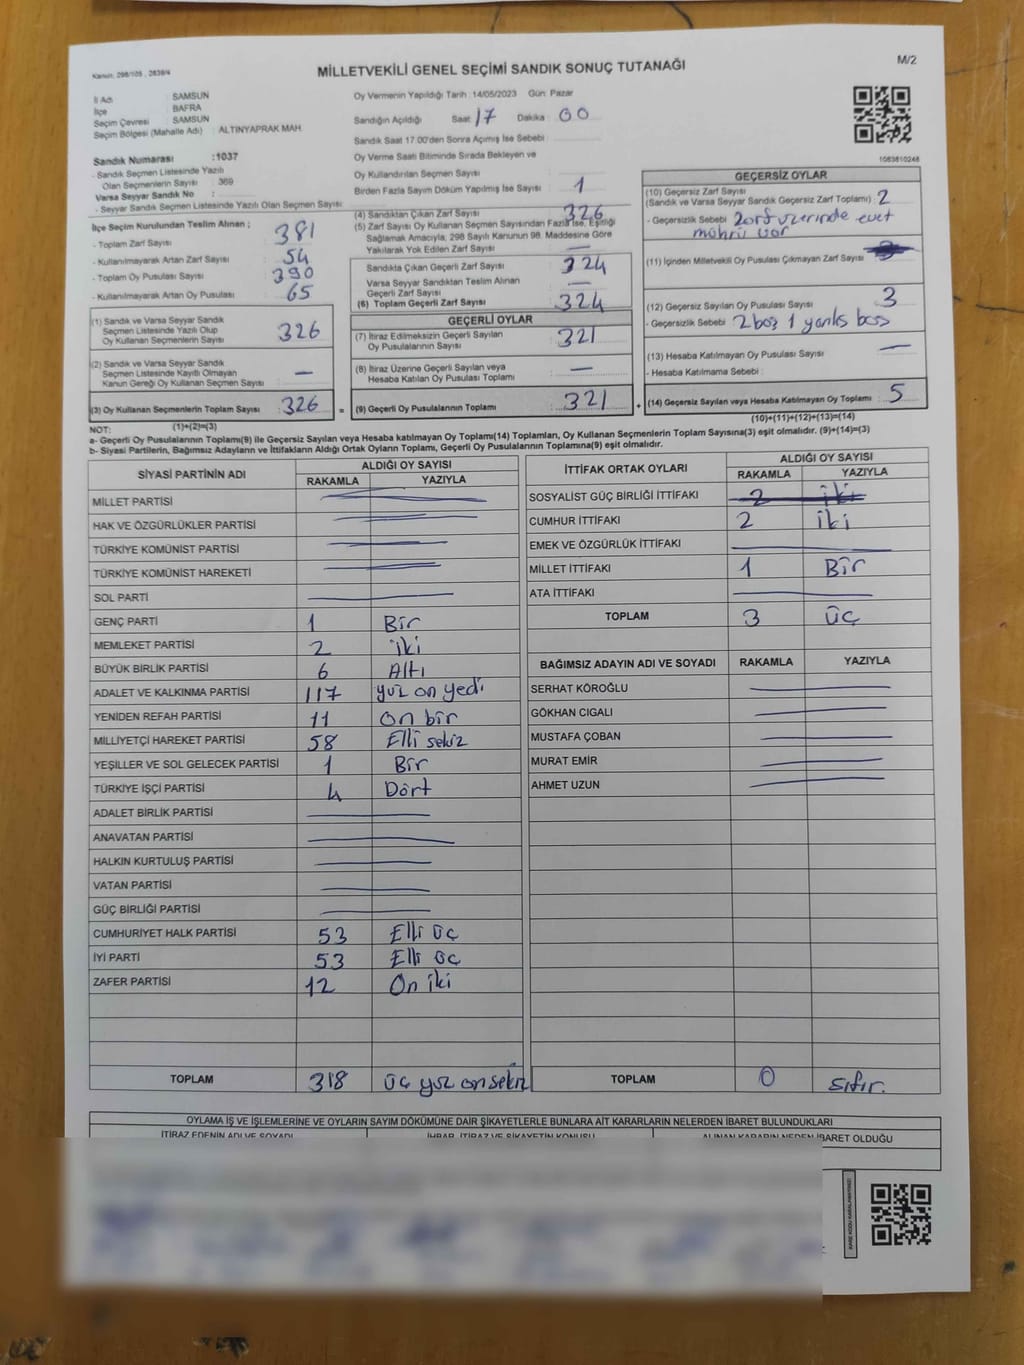 Kanun: 298/105 , 2839/4
MİLLETVEKİLİ GENEL SEÇİMİ SANDIK SONUÇ TUTANAĞI
M/2
İl Adı : SAMSUN
İlçe : BAFRA
Seçim Çevresi : SAMSUN
Seçim Bölgesi (Mahalle Adı) : ALTINYAPRAK MAH.
Sandık Numarası :1037
- Sandık Seçmen Listesinde Yazılı
Olan Seçmenlerin Sayısı : 369
Varsa Seyyar Sandık No :
- Seyyar Sandık Seçmen Listesinde Yazılı Olan Seçmen Sayısı :
Oy Vermenin Yapıldığı Tarih :14/05/2023 Gün: Pazar
Sandığın Açıldığı Saat : 17 Dakika : 00
Sandık Saat 17.00'den Sonra Açılmış İse Sebebi :
Oy Verme Saati Bitiminde Sırada Bekleyen ve
Oy Kullandırılan Seçmen Sayısı :
Birden Fazla Sayım Döküm Yapılmış İse Sayısı : 1
1083810248
İlçe Seçim Kurulundan Teslim Alınan ;
- Toplam Zarf Sayısı : 381
- Kullanılmayarak Artan Zarf Sayısı : 54
- Toplam Oy Pusulası Sayısı : 390
- Kullanılmayarak Artan Oy Pusulası : 65
(1) Sandık ve Varsa Seyyar Sandık
Seçmen Listesinde Yazılı Olup
Oy Kullanan Seçmenlerin Sayısı : 326
(2) Sandık ve Varsa Seyyar Sandık
Seçmen Listesinde Kayıtlı Olmayan
Kanun Gereği Oy Kullanan Seçmen Sayısı : —
(3) Oy Kullanan Seçmenlerin Toplam Sayısı : 326 =
(1)+(2)=(3)
(4) Sandıktan Çıkan Zarf Sayısı : 326
(5) Zarf Sayısı Oy Kullanan Seçmen Sayısından Fazla İse, Eşitliği
Sağlamak Amacıyla, 298 Sayılı Kanunun 98. Maddesine Göre
Yakılarak Yok Edilen Zarf Sayısı : —
Sandıkta Çıkan Geçerli Zarf Sayısı : 324
Varsa Seyyar Sandıktan Teslim Alınan
Geçerli Zarf Sayısı : —
(6) Toplam Geçerli Zarf Sayısı : 324
GEÇERLİ OYLAR
(7) İtiraz Edilmeksizin Geçerli Sayılan
Oy Pusulalarının Sayısı : 321
(8) İtiraz Üzerine Geçerli Sayılan veya
Hesaba Katılan Oy Pusulası Toplamı : —
(9) Geçerli Oy Pusulalarının Toplamı : 321 +
GEÇERSİZ OYLAR
(10) Geçersiz Zarf Sayısı
(Sandık ve Varsa Seyyar Sandık Geçersiz Zarf Toplamı) : 2
- Geçersizlik Sebebi : 2 zarf üzerinde evet
mührü var
(11) İçinden Milletvekili Oy Pusulası Çıkmayan Zarf Sayısı :
(12) Geçersiz Sayılan Oy Pusulası Sayısı : 3
- Geçersizlik Sebebi : 2 boş 1 yanlış bası
(13) Hesaba Katılmayan Oy Pusulası Sayısı : —
- Hesaba Katılmama Sebebi :
(14) Geçersiz Sayılan veya Hesaba Katılmayan Oy Toplamı : 5
(10)+(11)+(12)+(13)=(14)
NOT:
a- Geçerli Oy Pusulalarının Toplamı(9) ile Geçersiz Sayılan veya Hesaba katılmayan Oy Toplamı(14) Toplamları, Oy Kullanan Seçmenlerin Toplam Sayısına(3) eşit olmalıdır. (9)+(14)=(3)
b- Siyasi Partilerin, Bağımsız Adayların ve İttifakların Aldığı Ortak Oyların Toplamı, Geçerli Oy Pusulalarının Toplamına(9) eşit olmalıdır.
SİYASİ PARTİNİN ADI ALDIĞI OY SAYISI
RAKAMLA YAZIYLA
MİLLET PARTİSİ
HAK VE ÖZGÜRLÜKLER PARTİSİ
TÜRKİYE KOMÜNİST PARTİSİ
TÜRKİYE KOMÜNİST HAREKETİ
SOL PARTİ
GENÇ PARTİ 1 Bir
MEMLEKET PARTİSİ 2 iki
BÜYÜK BİRLİK PARTİSİ 6 Altı
ADALET VE KALKINMA PARTİSİ 117 yüz on yedi
YENİDEN REFAH PARTİSİ 11 on bir
MİLLİYETÇİ HAREKET PARTİSİ 58 Elli sekiz
YEŞİLLER VE SOL GELECEK PARTİSİ 1 Bir
TÜRKİYE İŞÇİ PARTİSİ 4 Dört
ADALET BİRLİK PARTİSİ
ANAVATAN PARTİSİ
HALKIN KURTULUŞ PARTİSİ
VATAN PARTİSİ
GÜÇ BİRLİĞİ PARTİSİ
CUMHURİYET HALK PARTİSİ 53 Elli üç
İYİ PARTİ 53 Elli üç
ZAFER PARTİSİ 12 On iki
TOPLAM 318 üç yüz on sekiz
İTTİFAK ORTAK OYLARI ALDIĞI OY SAYISI
RAKAMLA YAZIYLA
SOSYALİST GÜÇ BİRLİĞİ İTTİFAKI 2 iki
CUMHUR İTTİFAKI 2 iki
EMEK VE ÖZGÜRLÜK İTTİFAKI
MİLLET İTTİFAKI 1 Bir
ATA İTTİFAKI
TOPLAM 3 üç
BAĞIMSIZ ADAYIN ADI VE SOYADI RAKAMLA YAZIYLA
SERHAT KÖROĞLU
GÖKHAN CIGALI
MUSTAFA ÇOBAN
MURAT EMİR
AHMET UZUN
TOPLAM 0 sıfır.
OYLAMA İŞ VE İŞLEMLERİNE VE OYLARIN SAYIM DÖKÜMÜNE DAİR ŞİKAYETLERLE BUNLARA AİT KARARLARIN NELERDEN İBARET BULUNDUKLARI
İTİRAZ EDENİN ADI VE SOYADI İHBAR, İTİRAZ VE ŞİKAYETİN KONUSU ALINAN KARARIN NEDEN İBARET OLDUĞU